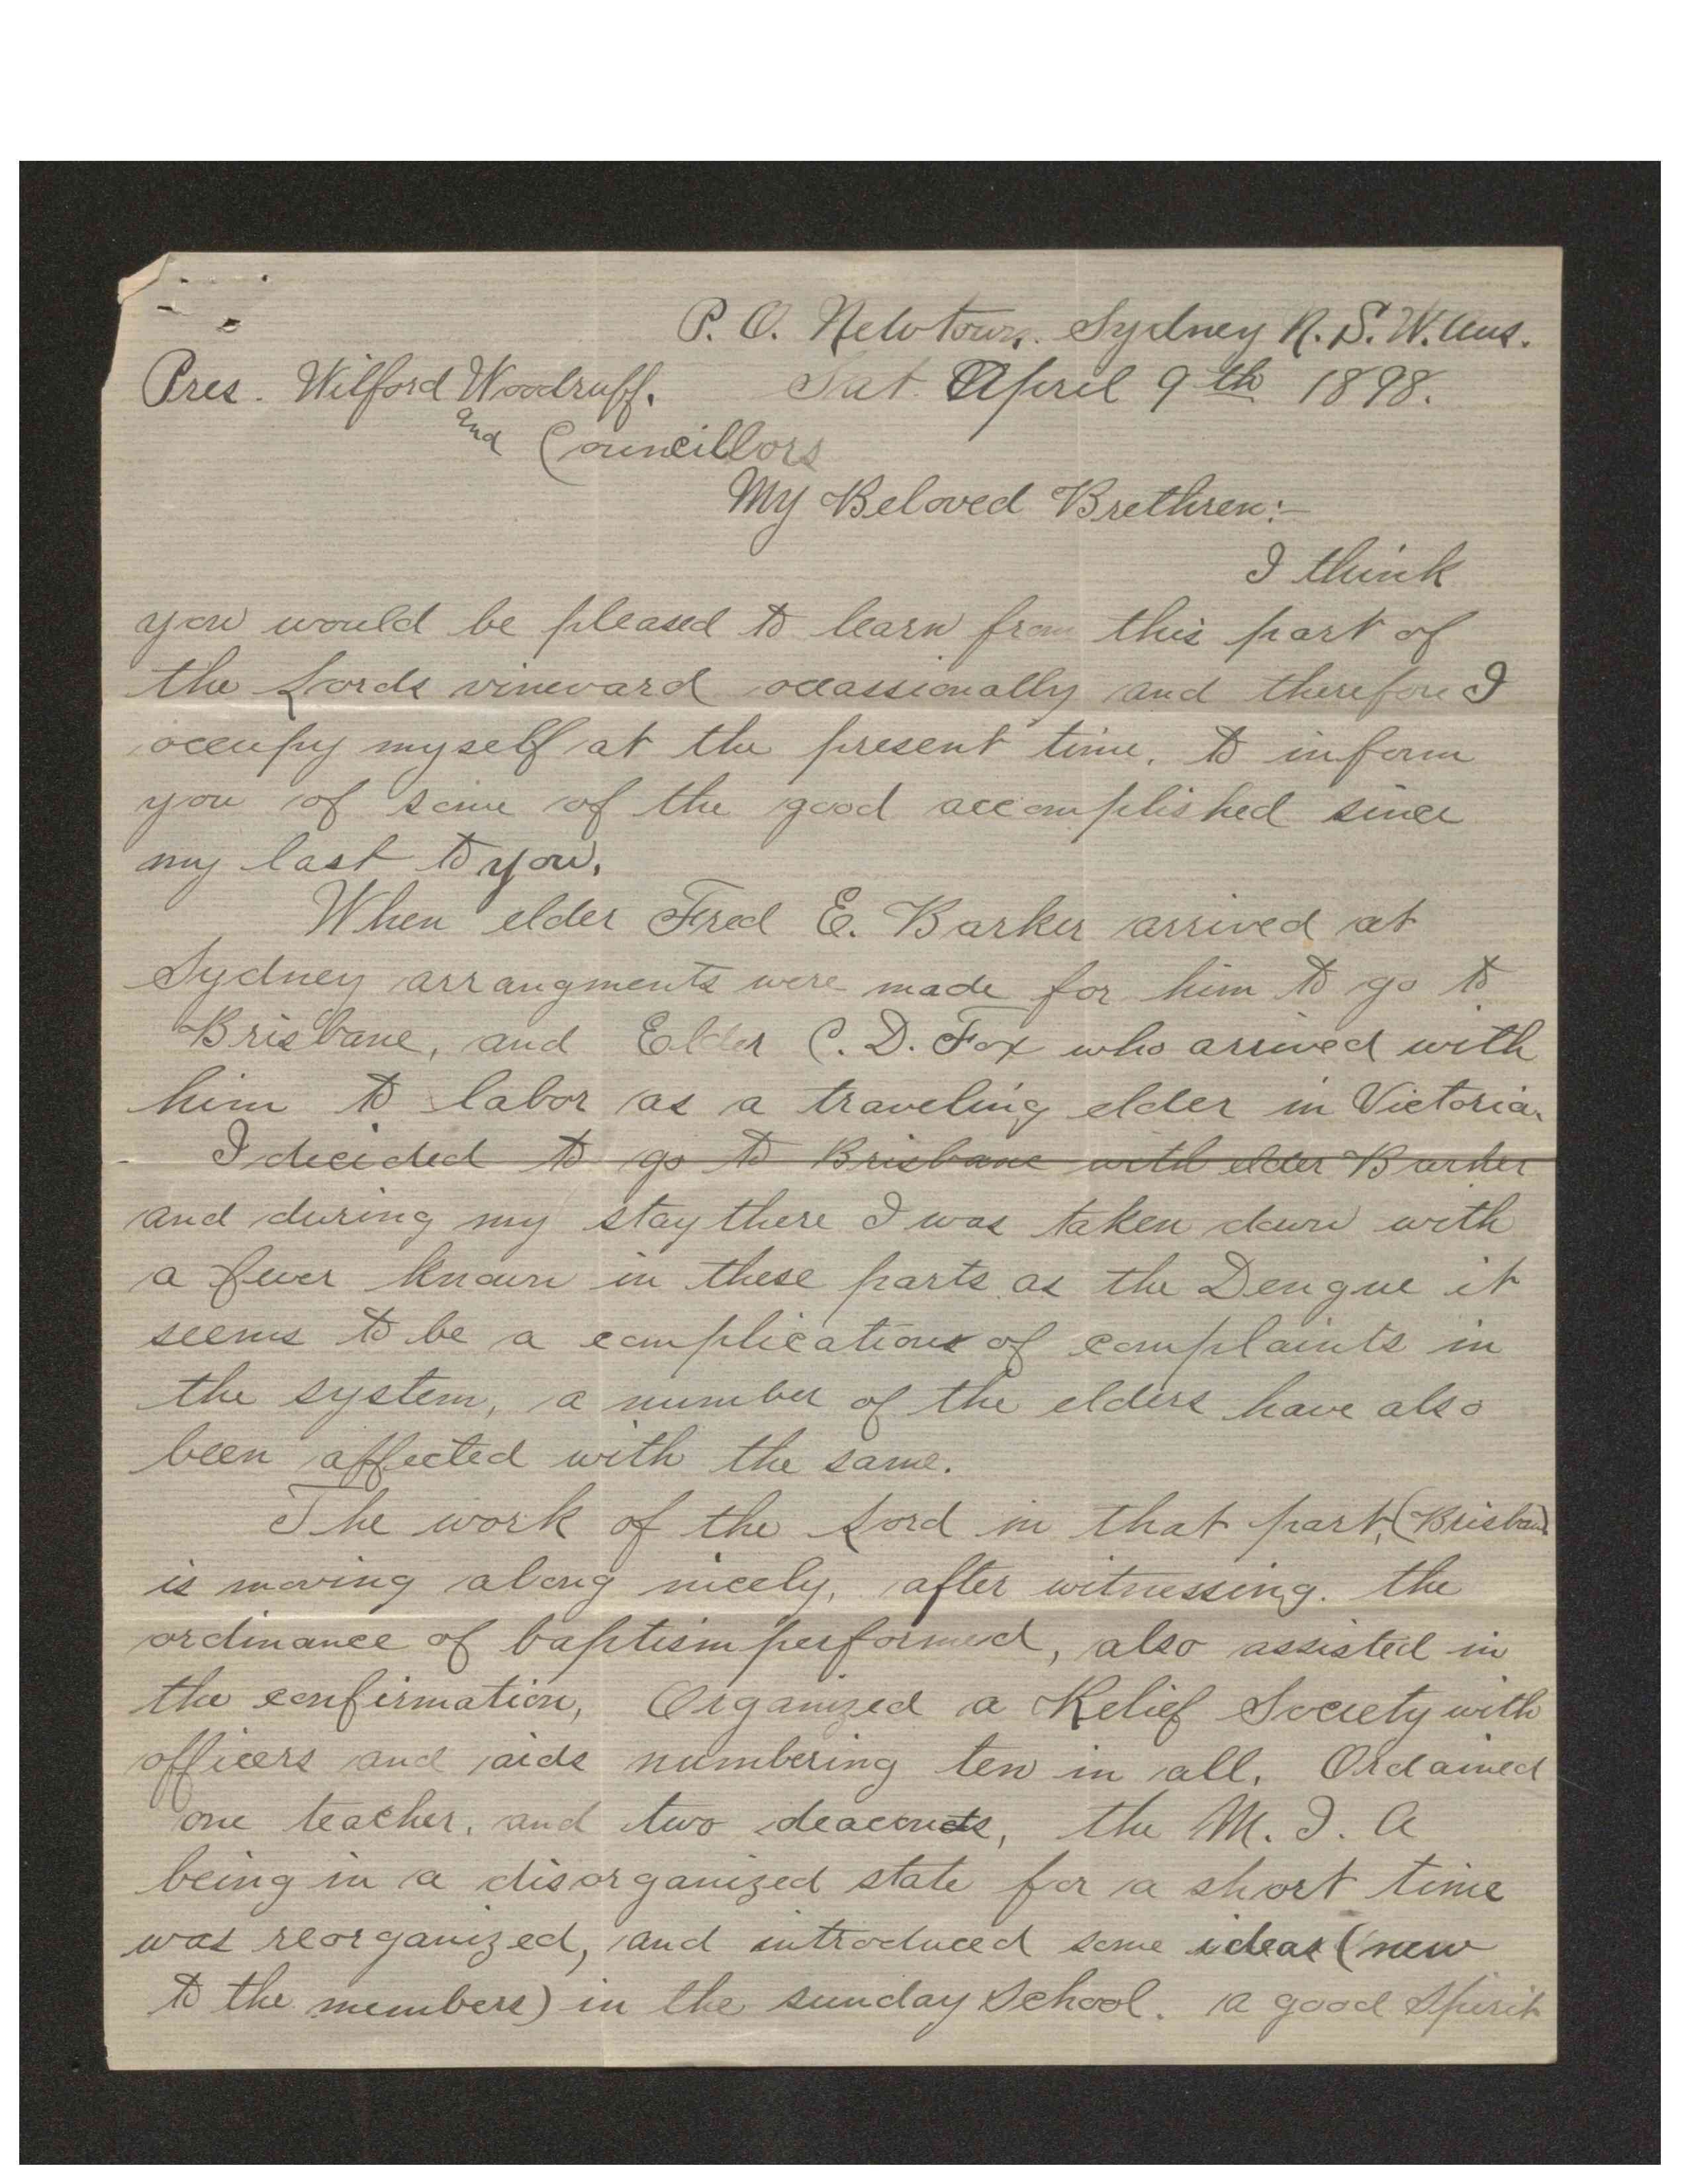 P. O. Newtown. Sydney N. S. W. Aus.
Pres. Wilford Woodruff. Sat. April 9th 1898.
and Councillors
My Beloved Brethren:-
I think
you would be pleased to learn from this part of
the Lords vineyard occassionally and therefore I
occupy myself at the present time, to inform
you of some of the good accomplished since
my last to you.
When elder Fred E. Barker arrived at
Sydney arrangments were made for him to go to
Brisbane, and Elder C. D. Fox who arrived with
him to labor as a traveling elder in Victoria.
I decided to go to Brisbane with elder Barker
and during my stay there I was taken down with
a fever known in these parts as the Dengue it
seems to be a complications of complaints in
the system, a number of the elders have also
been affected with the same.
The work of the Lord in that part, (Brisbane)
is moving along nicely, after witnessing. the
ordinance of baptism performed, also assisted in
the confirmation, Organized a Relief Society with
officers and aids numbering ten in all. Ordained
one teacher, and two deacons, the M. I. A
being in a disorganized state for a short time
was reorganized, and introduced some ideas (new
to the members) in the sunday School. a good Spirit